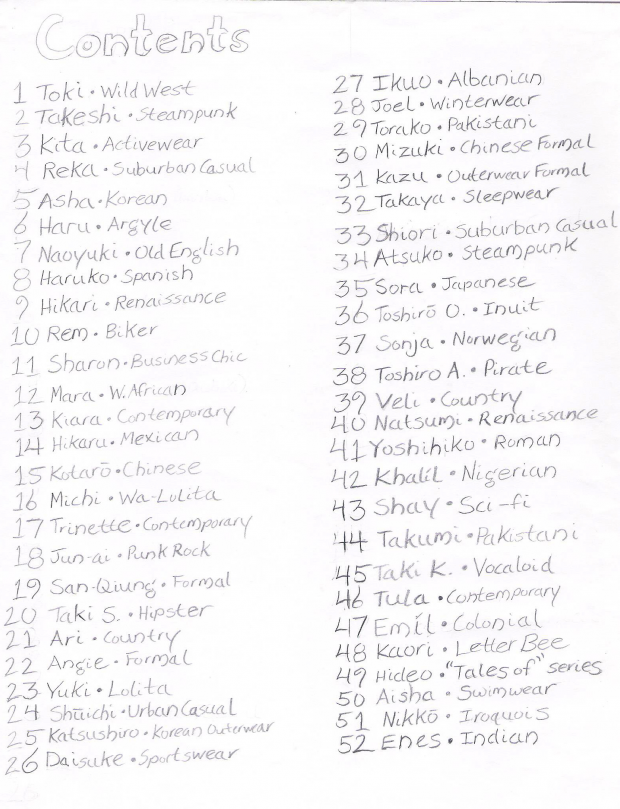 Contents
1 Toki • Wild West
2 Takeshi • Steampunk
3 Kita • Activewear
4 Reka • Suburban Casual
5 Asha • Korean
6 Haru • Argyle
7 Naoyuki • Old English
8 Haruko • Spanish
9 Hikari • Renaissance
10 Rem • Biker
11 Sharon • Business Chic
12 Mara • W. African
13 Kiara • Contemporary
14 Hikaru • Mexican
15 Kotarō • Chinese
16 Michi • Wa-Lolita
17 Trinette • Contemporary
18 Jun-ai • Punk Rock
19 San-Qiung • Formal
20 Taki S. • Hipster
21 Ari • Country
22 Angie • Formal
23 Yuki • Lolita
24 Shūichi • Urban Casual
25 Katsushiro • Korean Outerwear
26 Daisuke • Sportswear
27 Ikuo • Albanian
28 Joel • Winterwear
29 Torako • Pakistani
30 Mizuki • Chinese Formal
31 Kazu • Outerwear Formal
32 Takaya • Sleepwear
33 Shiori • Suburban Casual
34 Atsuko • Steampunk
35 Sora • Japanese
36 Toshirō O. • Inuit
37 Sonja • Norwegian
38 Toshiro A. • Pirate
39 Veli • Country
40 Natsumi • Renaissance
41 Yoshihiko • Roman
42 Khalíl • Nigerian
43 Shay • Sci-fi
44 Takumi • Pakistani
45 Taki K. • Vocaloid
46 Tula • Contemporary
47 Emíl • Colonial
48 Kaori • Letter Bee
49 Hideo • "Tales of" series
50 Aisha • Swimwear
51 Nikkō • Iroquois
52 Enes • Indian